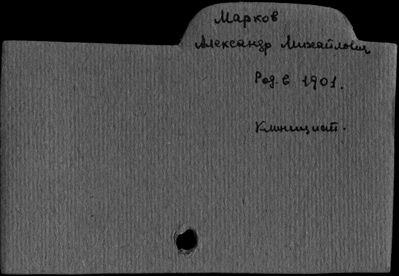 Марков
Александр Михайлович
Род. в 1901.
Клиницист.